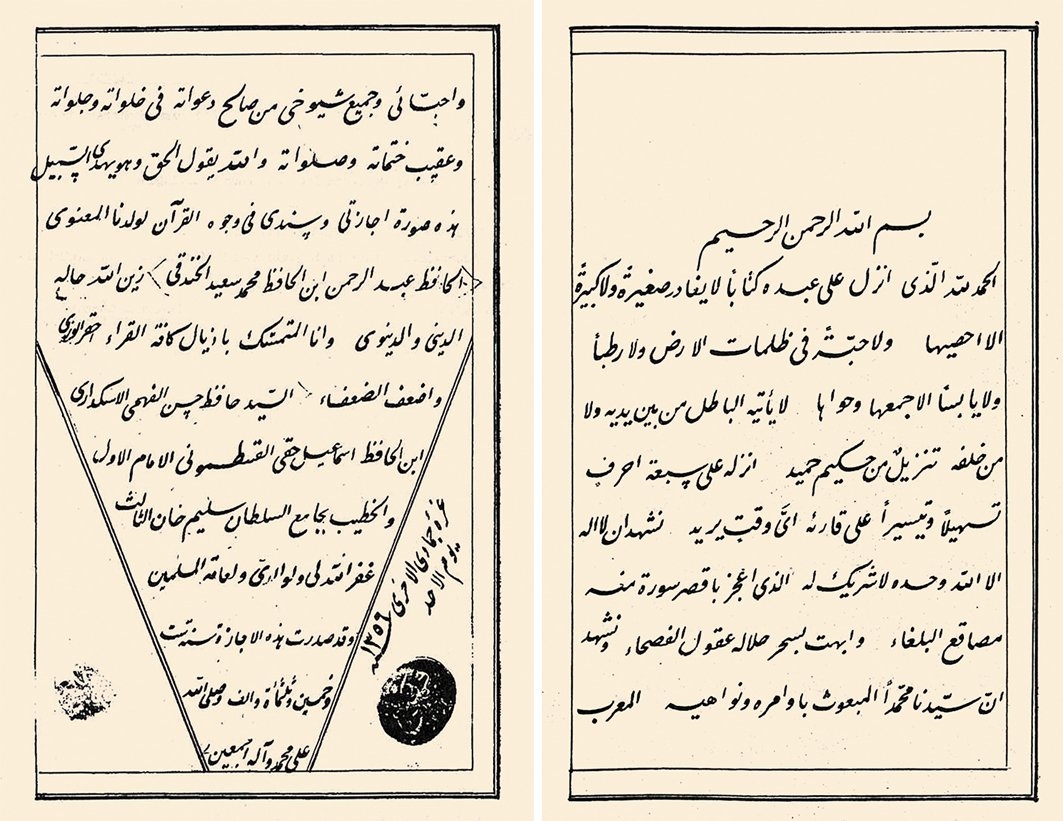 بسم الله الرحمن الرحيم
الحمد لله الّذى انزل على عبده كتاباً لا يغادر صغيرةً ولا كبيرةً
الا احصيها ولا حبّة فى ظلمات الارض ولا رطباً
ولا يابساً الا جمعها وحواها لا يأتيه الباطل من بين يديه ولا
من خلفه تنزيلٌ من حكيم حميد انزله على سبعة احرف
تسهيلاً وتيسيراً على قارئه اىّ وقت يريد نشهد ان لا اله
الا الله وحده لا شريك له الذى اعجز باقصر سورة منه
مصاقع البلغاء وابهت بسحر حلاله عقول الفصحاء ونشهد
انّ سيّدنا محمّداً المبعوث باوامره ونواهيه المعرب
واحبّائى وجميع شيوخى من صالح دعواته فى خلواته وجلواته
وعقيب ختماته وصلواته والله يقول الحق وهو يهدى السّبيل
هذه صورة اجازتى وسندى فى وجوه القرآن لولدنا المعنوى
الحافظ عبد الرحمن ابن الحافظ محمد سعيد الخندقى زين الله حاله
الدينى والدينوى وانا المتمسّك باذيال كافة القراء احقر الورى
واضعف الضعفاء السّيد حافظ حسن الفهمى الاسكدارى
ابن الحافظ اسماعيل حقى القسطمونى الامام الاول
والخطيب بجامع السلطان سليم خان الثالث
غفر الله لى ولوالدىّ ولعامة المسلمين
وقد صدرت هذه الاجازة سنة ست
وخمسين وثلثمأة والف وصلى الله
على محمد وآله اجمعين
غرّه جمادى الاخرى ١٣٥٦
يوم الاحد